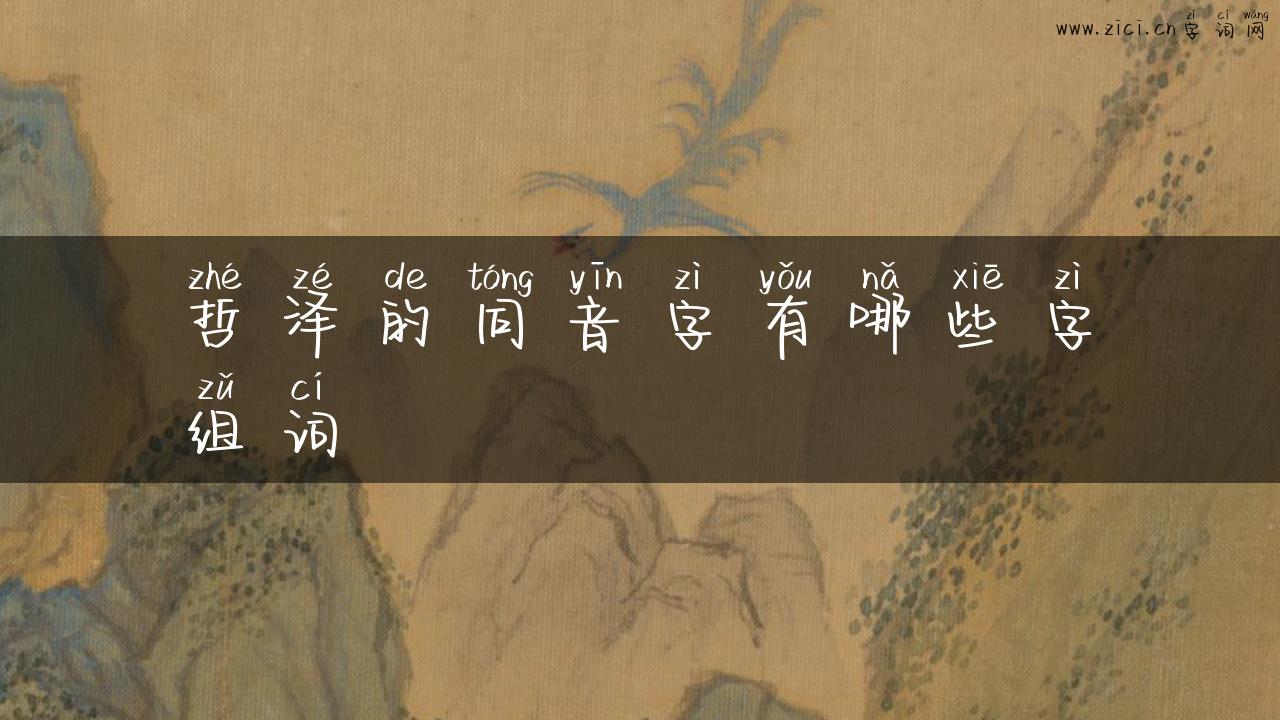 zì cí wǎng
www.zici.cn字词网
zhé zé de tóng yīn zì yǒu nǎ xiē zì
哲泽的同音字有哪些字
zǔ cí
组词